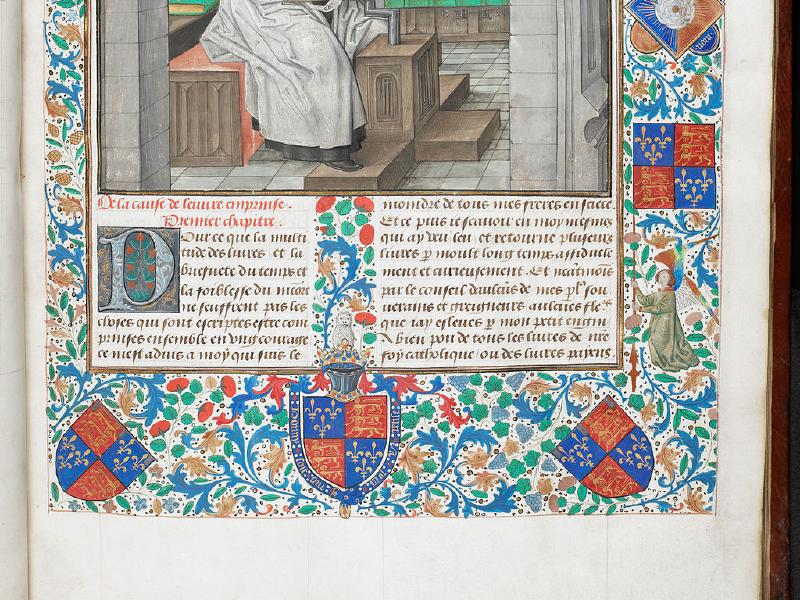 De la cause de leuure emprinse.
Premier chapitre.
Pour ce que la multi
tude des liures et la
briefuete du temps et
la foiblesse du mõoit
ne seuffrent pas les
choses qui sont escriptes estre com
prinses ensemble en vng courage
ce mest aduis a moy qui suis le
moindre de tous mes freres en
Et ce puis ie scauoir en moy mesmes
qui ay veu leu et retourne plusieurs
liures p moult long temps assiduele
ment et curieusement. Et neãtmois
par le conseil daulcũs de mes sou
uerains et greigneurs aulcũes
que iay esleues p mon petit engin
A bien pou de tous les liures de nre
foy catholique ou des liures payens.